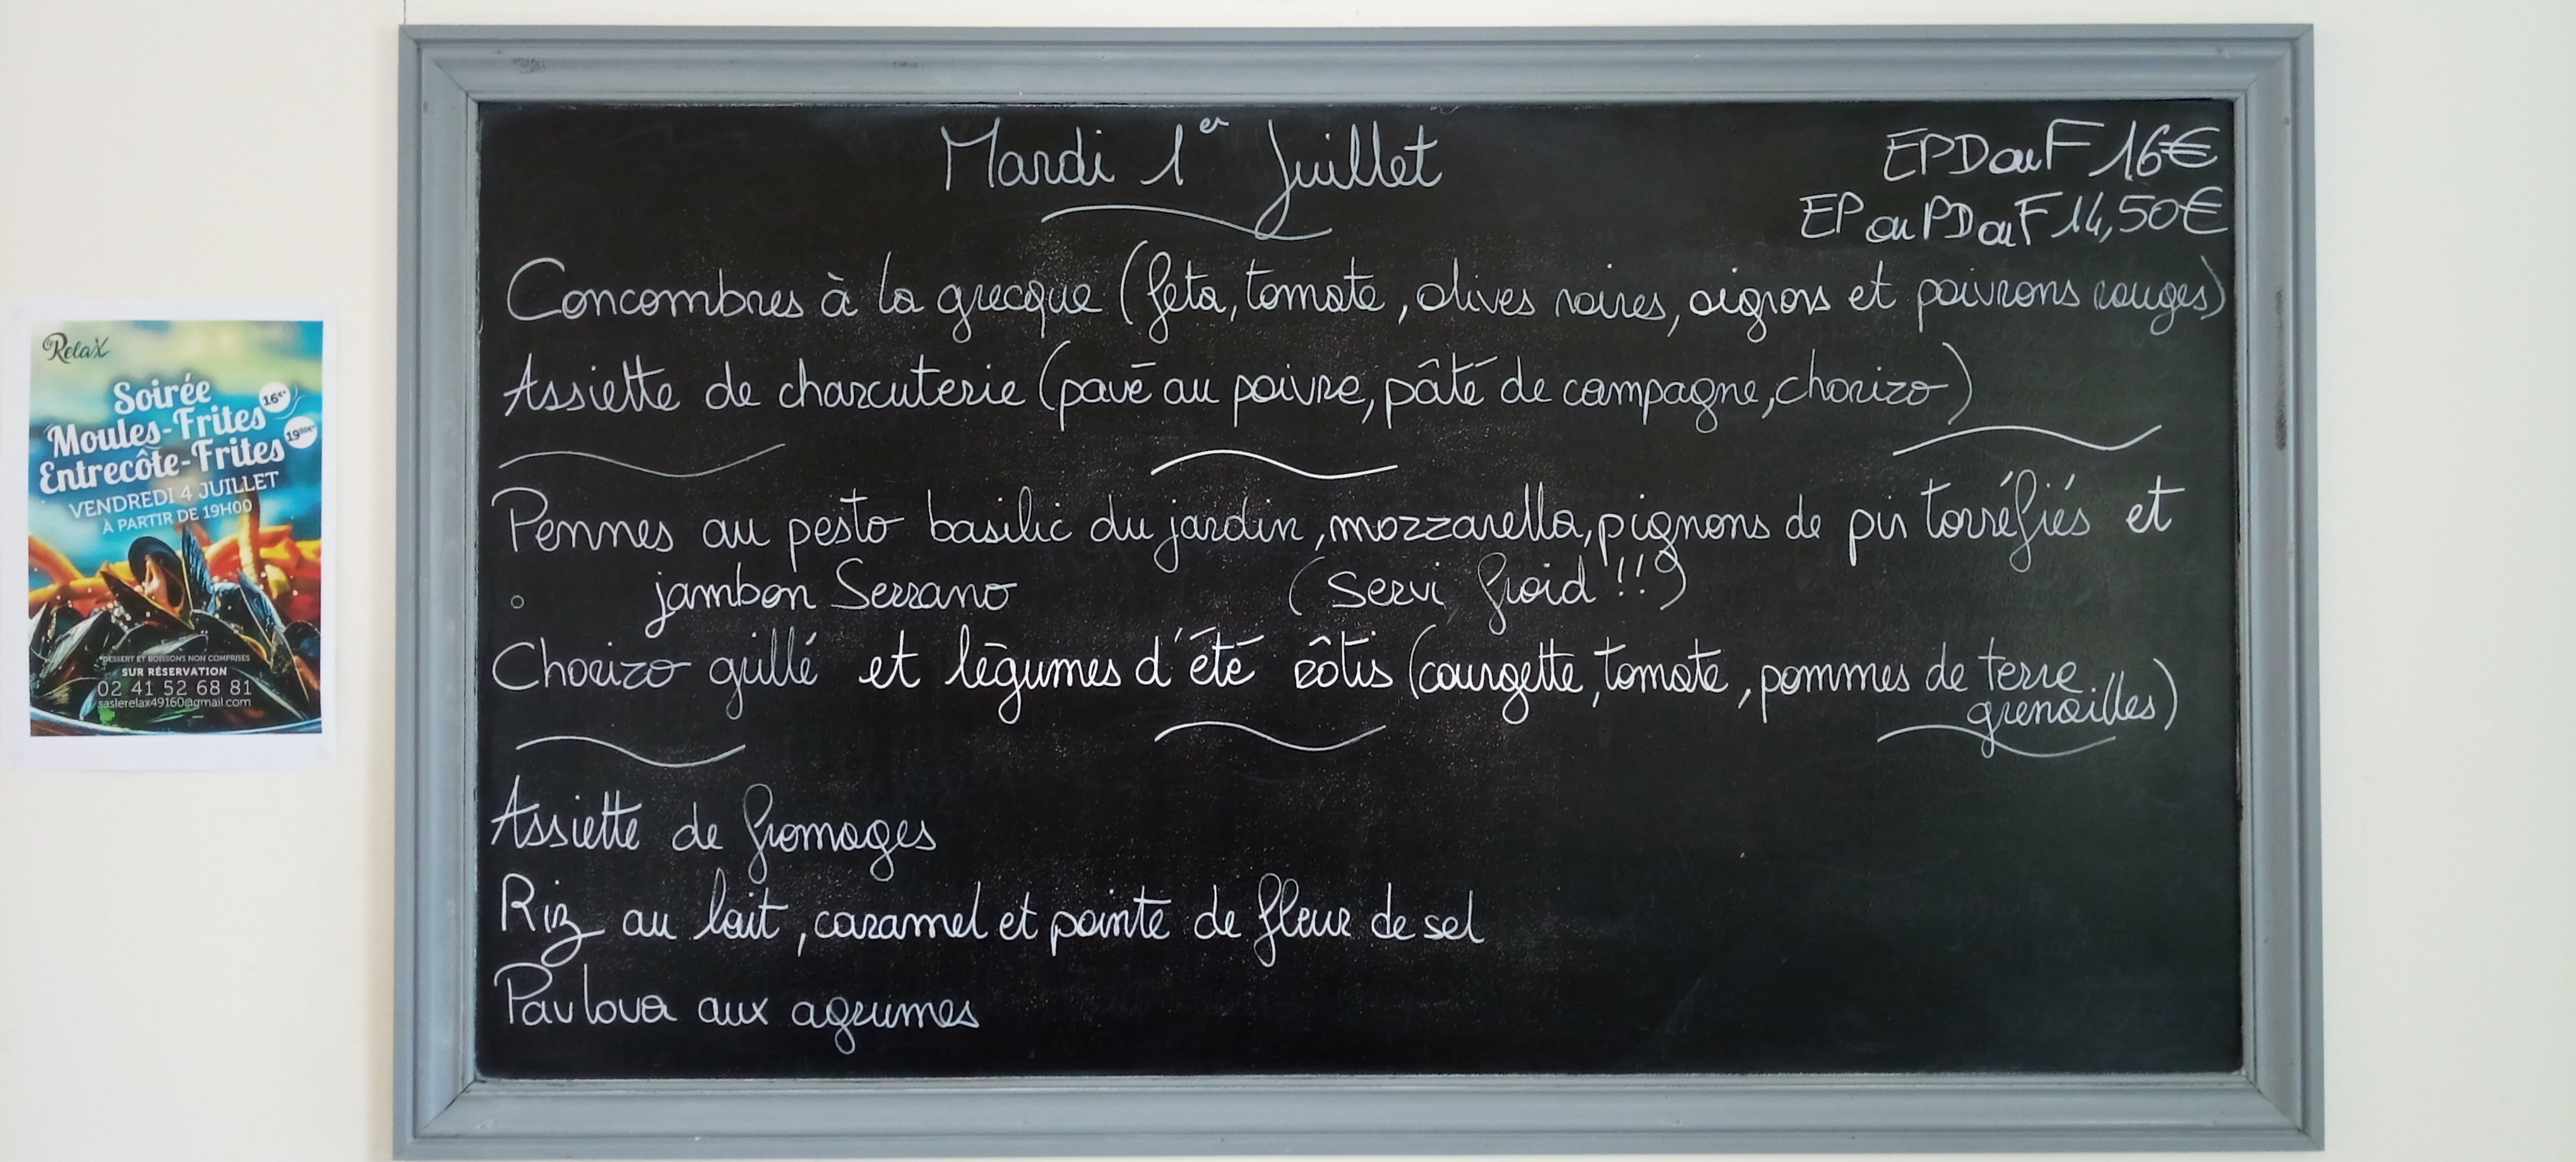 Mardi 1er Juillet
EPDouF 16€
EP ou PDouF 14,50€
Concombres à la grecque (feta, tomate, olives noires, oignons et poivrons rouges)
Assiette de charcuterie (pavé au poivre, pâté de campagne, chorizo)
Pennes au pesto basilic du jardin, mozzarella, pignons de pin torréfiés et
jambon Serrano (servi froid !!!)
Chorizo grillé et légumes d'été rôtis (courgette, tomate, pommes de terre
grenailles)
Assiette de fromages
Riz au lait, caramel et pointe de fleur de sel
Pavlova aux agrumes
Relax
Soirée
Moules-Frites 16€*
Entrecôte-Frites 1950€*
VENDREDI 4 JUILLET
À PARTIR DE 19H00
*DESSERT ET BOISSONS NON COMPRISES
SUR RÉSERVATION
02 41 52 68 81
saslerelax49160@gmail.com